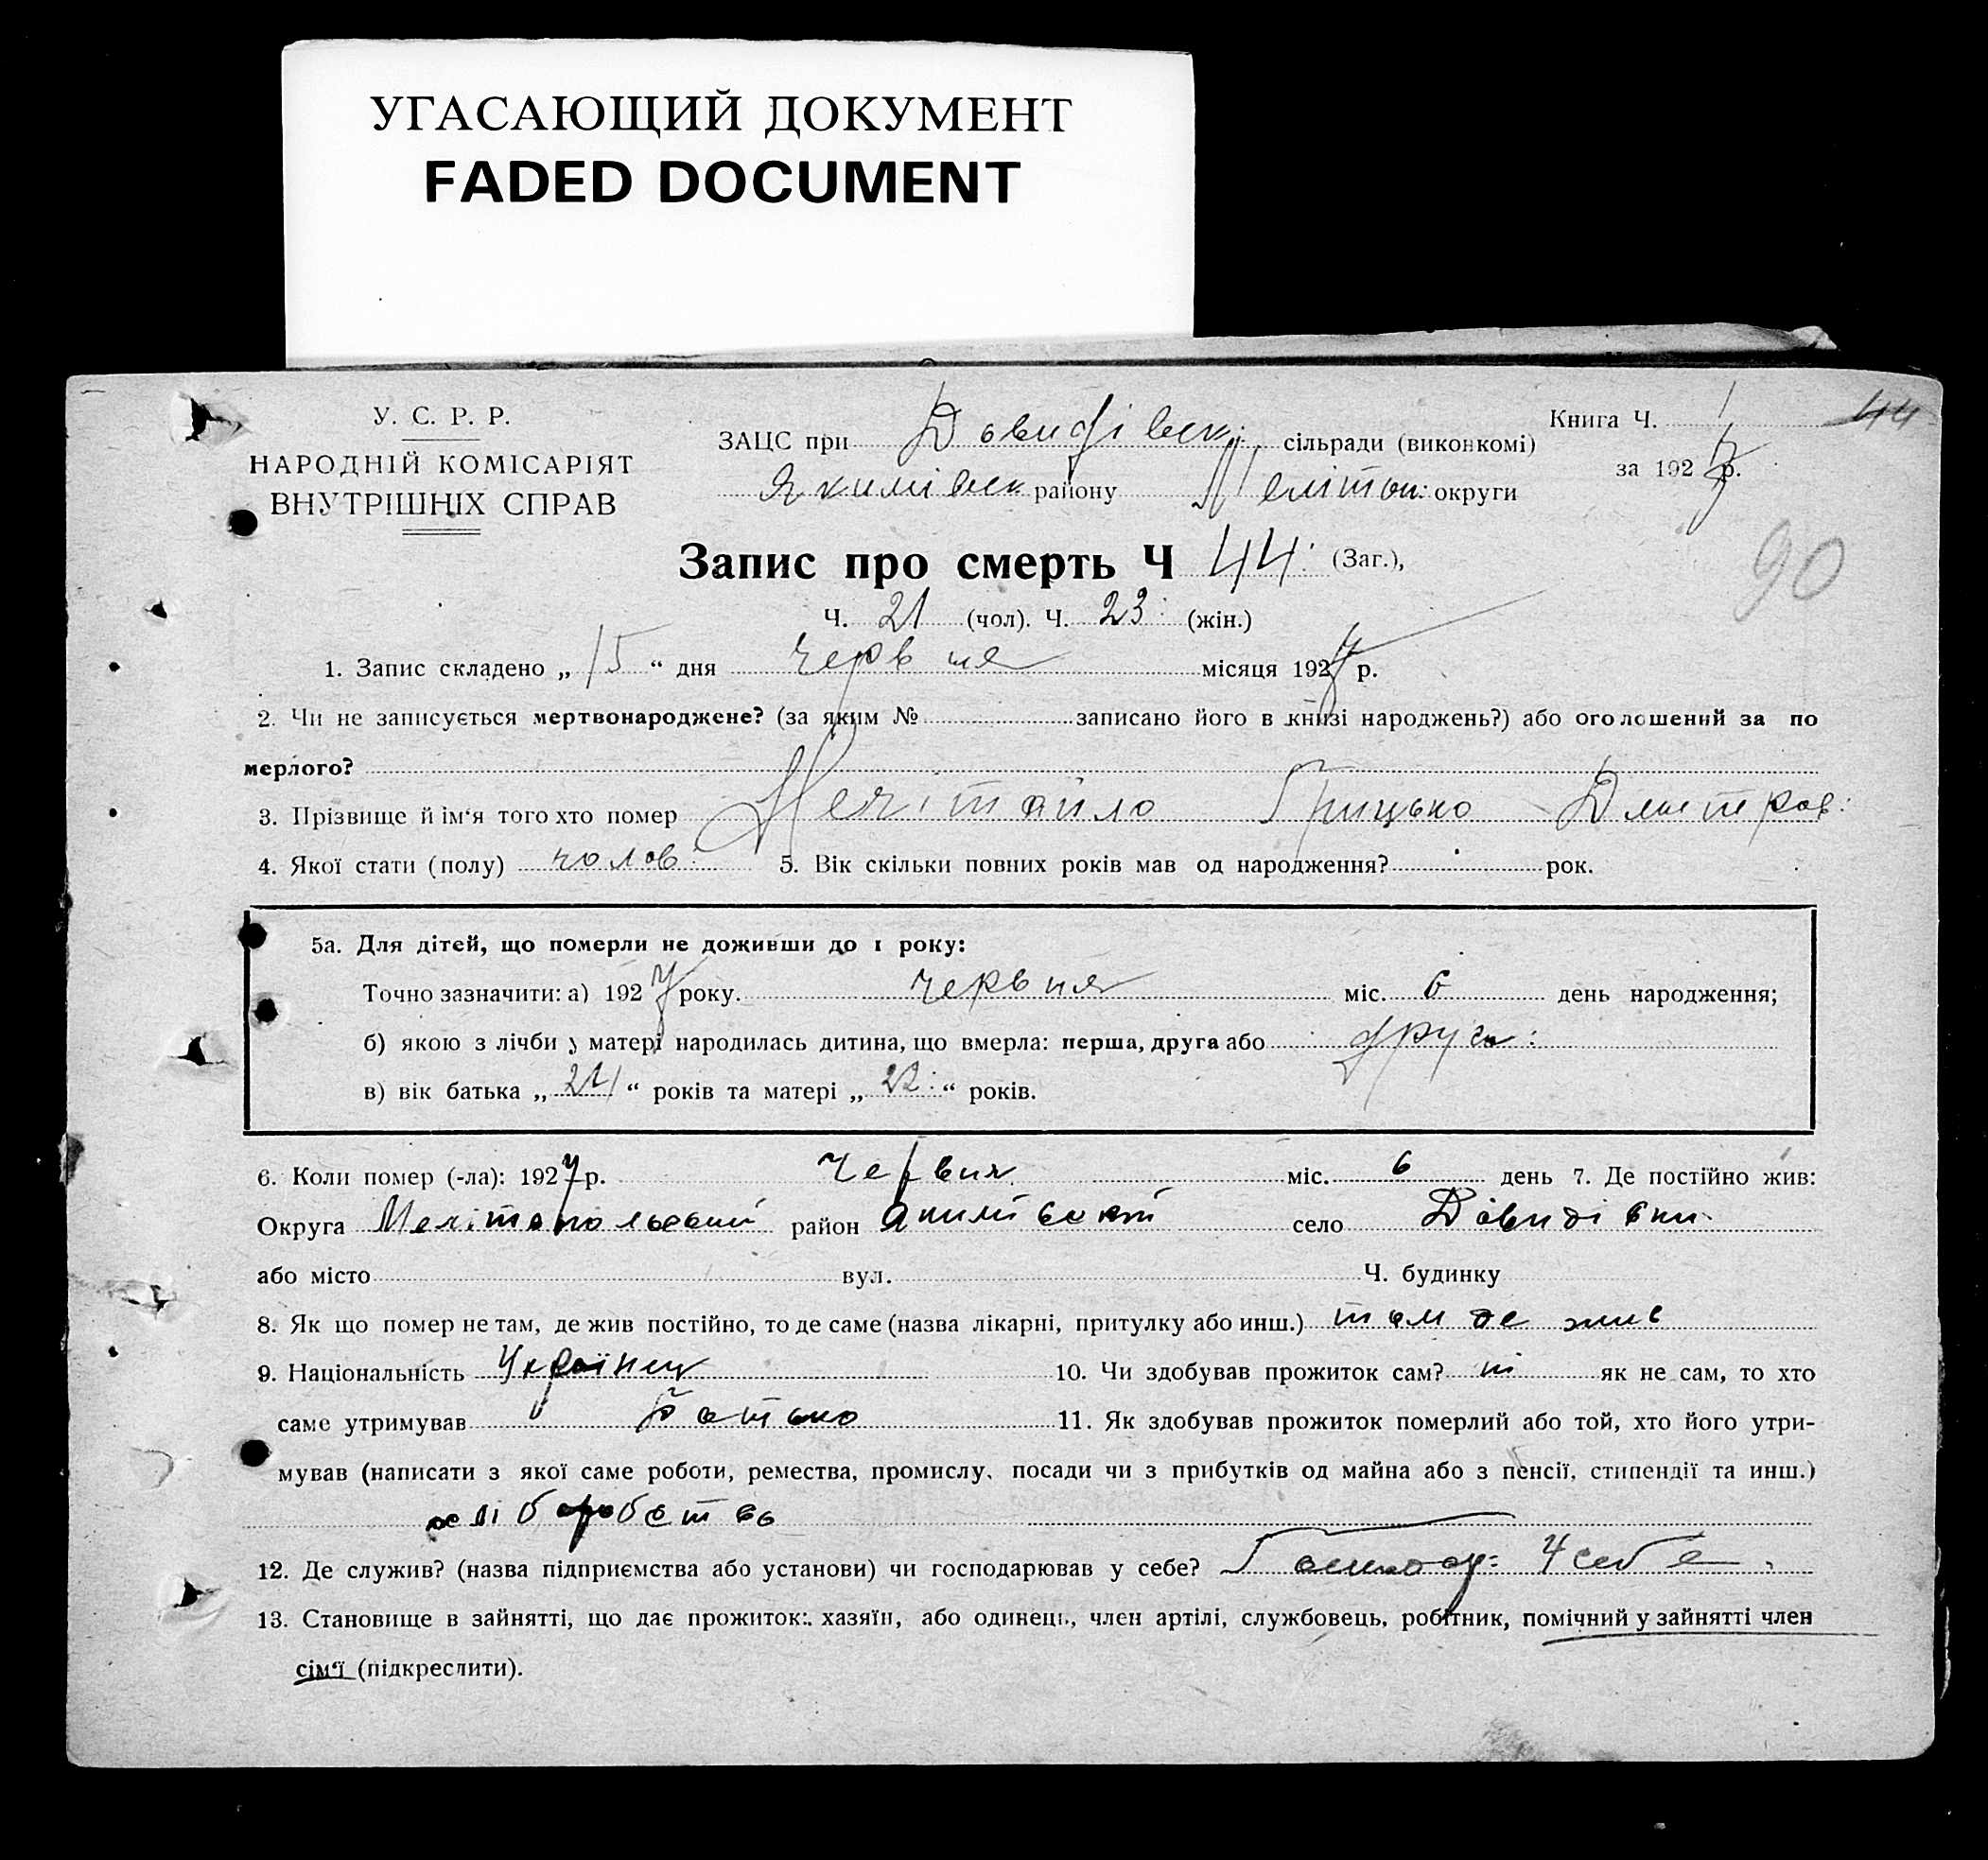 УГАСАЮЩИЙ ДОКУМЕНТ
FADED DOCUMENT
У. С. Р. Р.
НАРОДНІЙ КОМІСАРІЯТ
ВНУТРІШНІХ СПРАВ
ЗАЦС при Довидівськ: сільради (виконкомі)
Якимівськ району Мелітоп: округи
Книга Ч. 1
44
за 1927 р.
90
Запис про смерть Ч 44: (Заг.),
Ч. 21 (чол). Ч. 23: (жін.)
1. Запис складено „ 15 “ дня червня місяця 1927 р.
2. Чи не записується мертвонароджене? (за яким № записано його в книзі народжень?) або оголошений за по
мерлого?
3. Прізвище й ім'я того хто помер Нечітайло Грицько Дмитров:
4. Якої стати (полу) чолов: 5. Вік скільки повних років мав од народження? рок.
5а. Для дітей, що померли не доживши до 1 року:
Точно зазначити: а) 1927 року. червня міс. 6 день народження;
б) якою з лічби у матері народилась дитина, що вмерла: перша, друга або друга:
в) вік батька „ 21 “ років та матері „ 22: “ років.
6. Коли помер (-ла): 1927 р. Червня міс. 6 день 7. Де постійно жив:
Округа Мелітопольский район Якимівский село Довидівки
або місто вул. Ч. будинку
8. Як що помер не там, де жив постійно, то де саме (назва лікарні, притулку або инш.) там де жив
9. Національність Українец 10. Чи здобував прожиток сам? ні як не сам, то хто
саме утримував батько 11. Як здобував прожиток померлий або той, хто його утри-
мував (написати з якої саме роботи, ремества, промислу, посади чи з прибутків од майна або з пенсії, стипендії та инш.)
хліборобство
12. Де служив? (назва підприємства або установи) чи господарював у себе? Господ: У себе
13. Становище в зайнятті, що дає прожиток: хазяїн, або одинець, член артілі, службовець, робітник, помічний у зайнятті член
сім'ї (підкреслити).